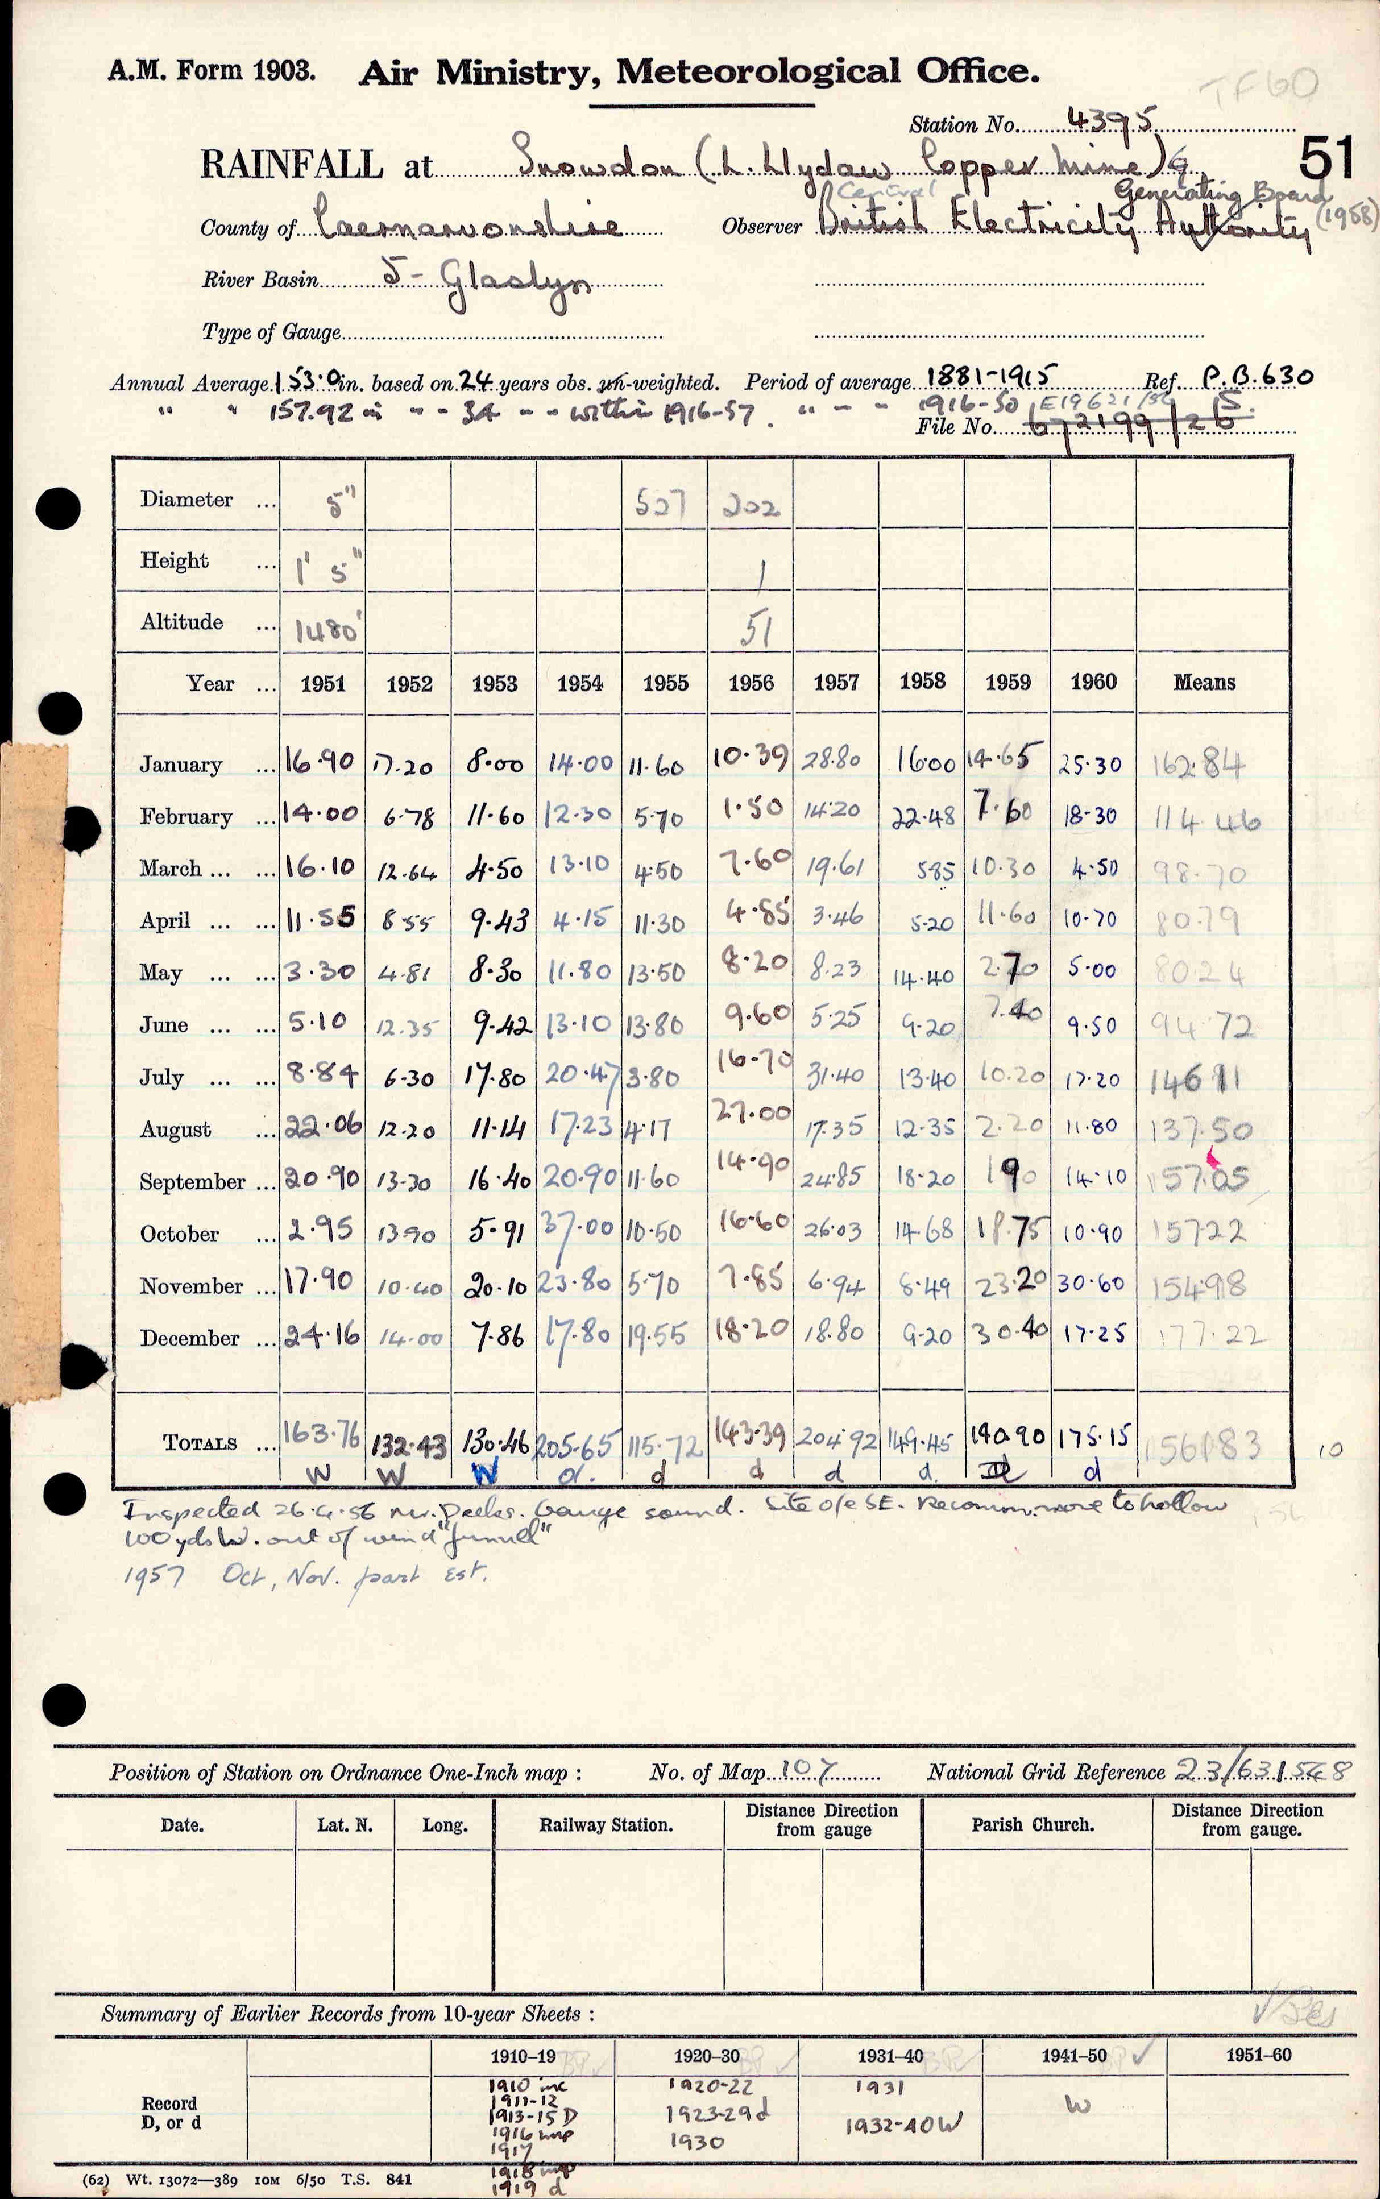 A.M. Form 1903. Air Ministry, Meteorological Office.
TF60
Station No. 4395
RAINFALL at Snowdon (L. Llydaw Copper Mine) G
51
Central Generating Board (1958)
County of Caernarvonshire Observer British Electricity Authority
River Basin 5 - Glaslyn
Type of Gauge
Annual Average 153.0 in. based on 24 years obs. un-weighted. Period of average 1881-1915 Ref. P.B.630
" " 157.92 in " " 34 " " within 1916-57. " " " 1916-50
File No. 672199/26
Diameter ... 5" 527 202
Height ... 1' 5" 1
Altitude ... 1480' 51
Year ... 1951 1952 1953 1954 1955 1956 1957 1958 1959 1960 Means
January ... 16.90 17.20 8.00 14.00 11.60 10.39 28.80 16.00 14.65 25.30 162.84
February ... 14.00 6.78 11.60 12.30 5.70 1.50 14.20 22.48 7.60 18.30 114.46
March ... ... 16.10 12.64 4.50 13.10 4.50 7.60 19.61 5.85 10.30 4.50 98.70
April ... ... 11.55 8.55 9.43 4.15 11.30 4.85 3.46 5.20 11.60 10.70 80.79
May ... ... 3.30 4.81 8.30 11.80 13.50 8.20 8.23 14.40 2.70 5.00 80.24
June ... ... 5.10 12.35 9.42 13.10 13.80 9.60 5.25 9.20 7.40 9.50 94.72
July ... ... 8.84 6.30 17.80 20.47 3.80 16.70 31.40 13.40 10.20 17.20 146.11
August ... 22.06 12.20 11.14 17.23 4.17 27.00 17.35 12.35 2.20 11.80 137.50
September ... 20.90 13.30 16.40 20.90 11.60 14.90 24.85 18.20 1.90 14.10 157.05
October ... 2.95 13.90 5.91 37.00 10.50 16.60 26.03 14.68 18.75 10.90 157.22
November ... 17.90 10.40 20.10 23.80 5.70 7.85 6.94 8.49 23.20 30.60 154.98
December ... 24.16 14.00 7.86 17.80 19.55 18.20 18.80 9.20 30.40 17.25 177.22
TOTALS ... 163.76 132.43 130.46 205.65 115.72 143.39 204.92 149.45 140.90 175.15 1561.83 10
W W W d. d d d d. d
Inspected 26.4.56 Mr. Gauge sound. Site o/e SE. Recomm. move to hollow
100 yds W. out of wind "funnel"
1957 Oct, Nov. part Est.
Position of Station on Ordnance One-Inch map : No. of Map 107 National Grid Reference 23/631548
Date. Lat. N. Long. Railway Station. Distance Direction from gauge Parish Church. Distance Direction from gauge.
Summary of Earlier Records from 10-year Sheets :
1910–19 1920–30 1931–40 1941–50 1951–60
Record D, or d
1910 inc 1920-22 1931 W
1911-12
1913-15 D 1923-29 d 1932-40 W
1916 imp 1930
1917
1918 imp
1919 d
(62) Wt. 13072—389 10M 6/50 T.S. 841